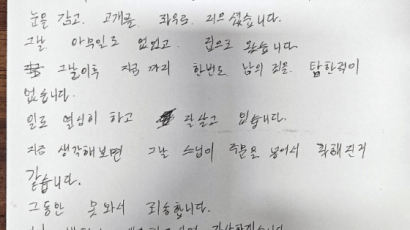 눈을 감고. 고개를 좌우로.
그날 아무일도 없었고. 집으로 왔습니다
그날이후 지금까지 한번도 남의 것을 탐한적이
없습니다.
일도 열심히 하고 잘살고 있습니다.
지금 생각해보면 그날 스님이 주문을 넣어서 착해진거
같습니다.
그동안 못와서 죄송합니다.